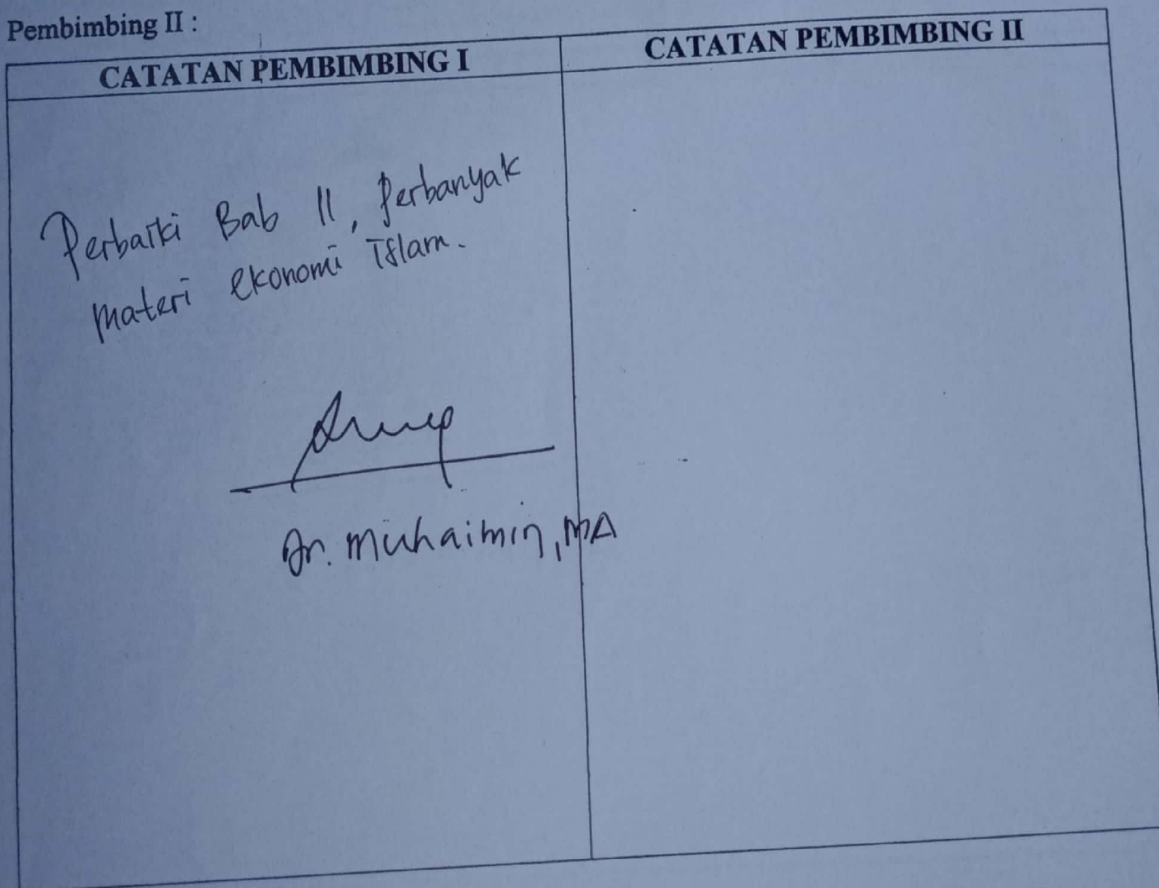 Pembimbing II :
CATATAN PEMBIMBING I
CATATAN PEMBIMBING II
Perbaiki Bab II, Perbanyak
materi ekonomi Islam.
Dr. Muhaimin, MA